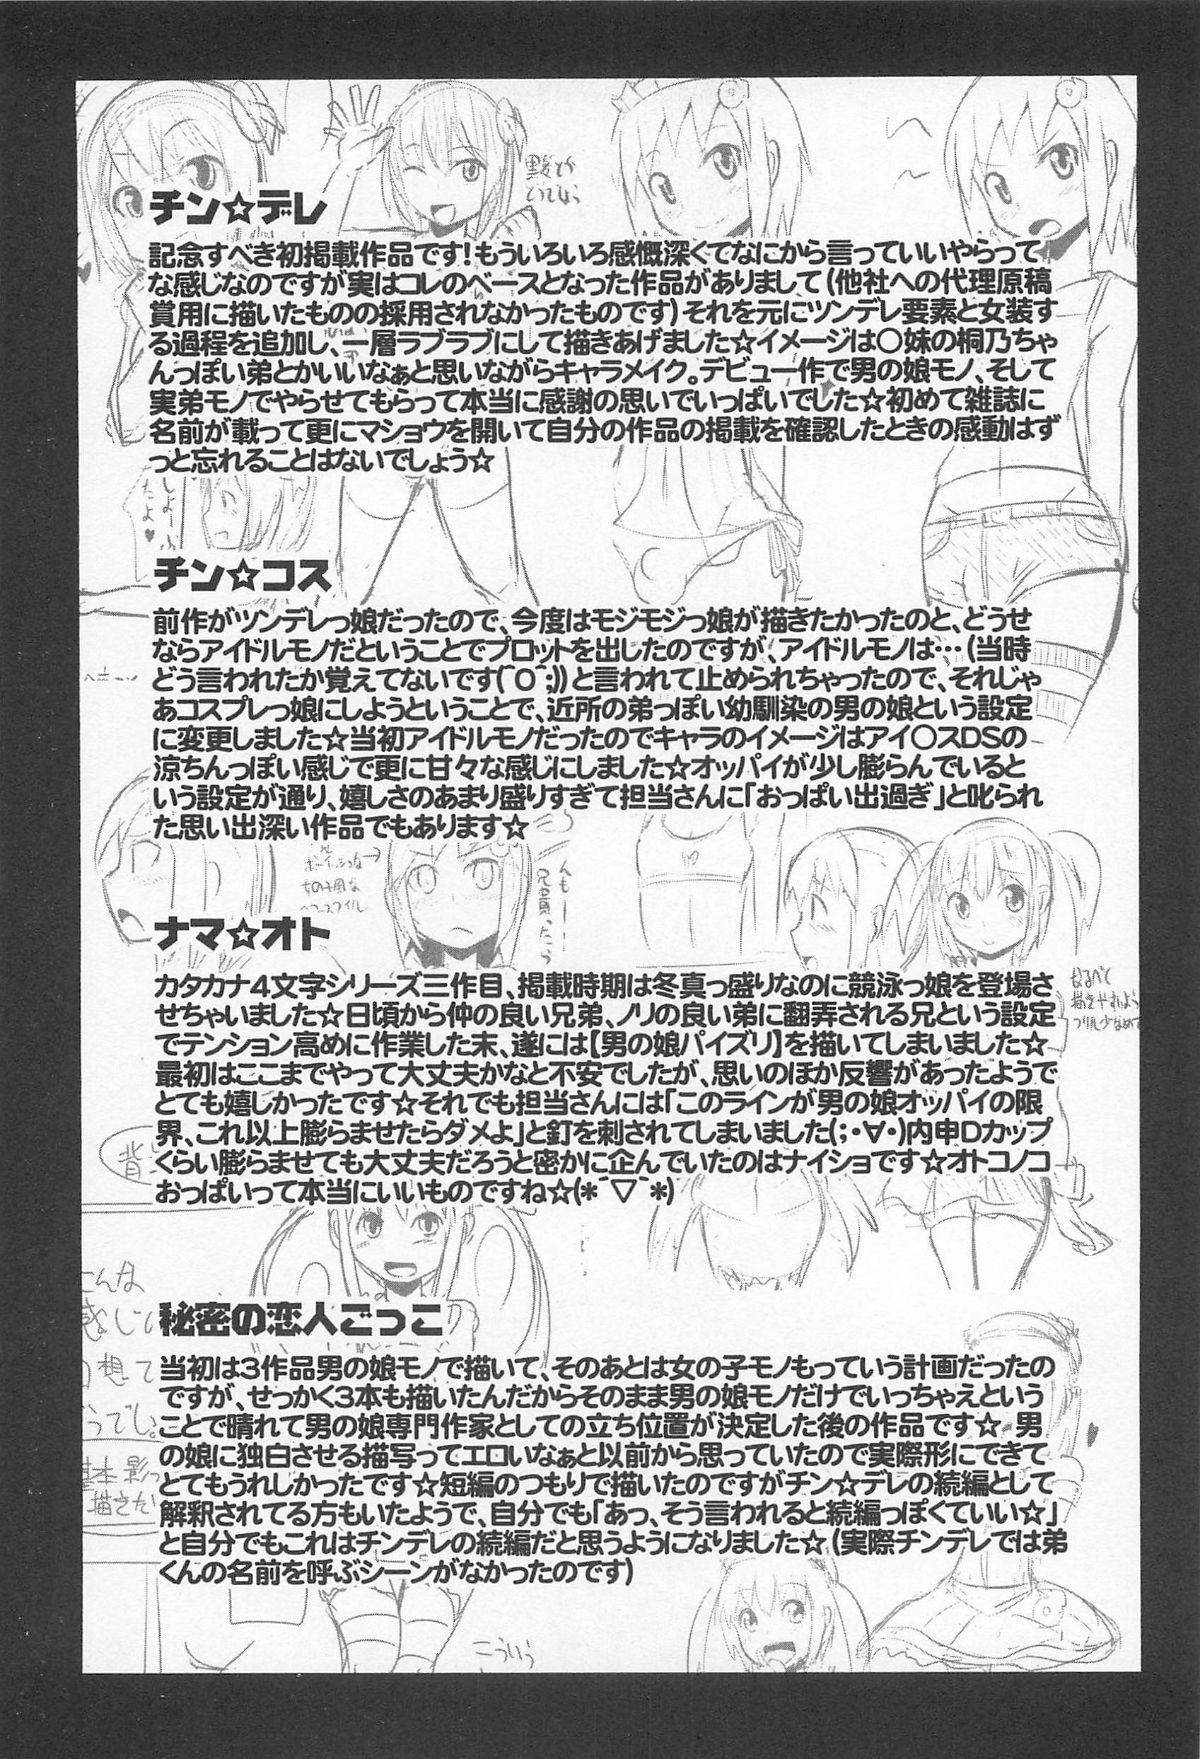 チン☆デレ
記念すべき初掲載作品です！もういろいろ感慨深くてなにから言っていいやらって
な感じなのですが実はコレのベースとなった作品がありまして(他社への代理原稿
賞用に描いたものの採用されなかったものです)それを元にツンデレ要素と女装す
る過程を追加し、一層ラブラブにして描きあげました☆イメージは〇妹の桐乃ちゃ
んっぽい弟とかいいなぁと思いながらキャラメイク。デビュー作で男の娘モノ、そして
実弟モノでやらせてもらって本当に感謝の思いでいっぱいでした☆初めて雑誌に
名前が載って更にマショウを開いて自分の作品の掲載を確認したときの感動はず
っと忘れることはないでしょう☆
しよーふ
たよ♥
チン☆コス
前作がツンデレっ娘だったので、今度はモジモジっ娘が描きたかったのと、どうせ
ならアイドルモノだということでプロットを出したのですが、アイドルモノは…(当時
どう言われたか覚えてないです(￣О￣;))と言われて止められちゃったので、それじゃ
あコスプレっ娘にしようということで、近所の弟っぽい幼馴染の男の娘という設定
に変更しました☆当初アイドルモノだったのでキャラのイメージはアイ〇スDSの
涼ちんっぽい感じで更に甘々な感じにしました☆オッパイが少し膨らんでいると
いう設定が通り、嬉しさのあまり盛りすぎて担当さんに「おっぱい出過ぎ」と叱られ
た思い出深い作品でもあります☆
ボーイッシュな→
女の子風な
ヘアースタイル
んもーーー
ナマ☆オト
カタカナ4文字シリーズ三作目、掲載時期は冬真っ盛りなのに競泳っ娘を登場さ
せちゃいました☆日頃から仲の良い兄弟、ノリの良い弟に翻弄される兄という設定
でテンション高めに作業した末、遂には【男の娘パイズリ】を描いてしまいました☆
最初はここまでやって大丈夫かなと不安でしたが、思いのほか反響があったようで
とても嬉しかったです☆それでも担当さんには「このラインが男の娘オッパイの限
界、これ以上膨らませたらダメよ」と釘を刺されてしまいました(；・∀・)内申Dカップ
くらい膨らませても大丈夫だろうと密かに企んでいたのはナイショです☆オトコノコ
おっぱいって本当にいいものですね☆(*´▽`*)
なるべく
描きやすいよう
フリル少なめで
背
秘密の恋人ごっこ
当初は3作品男の娘モノで描いて、そのあとは女の子モノもっていう計画だったの
ですが、せっかく3本も描いたんだからそのまま男の娘モノだけでいっちゃえという
ことで晴れて男の娘専門作家としての立ち位置が決定した後の作品です☆ 男
の娘に独白させる描写ってエロいなぁと以前から思っていたので実際形にできて
とてもうれしかったです☆短編のつもりで描いたのですがチン☆デレの続編として
解釈されてる方もいたようで、自分でも「あっ、そう言われると続編っぽくていい☆」
と自分でもこれはチンデレの続編だと思うようになりました☆(実際チンデレでは弟
くんの名前を呼ぶシーンがなかったのです)
こんな
感じ
想て
描きた
こういう